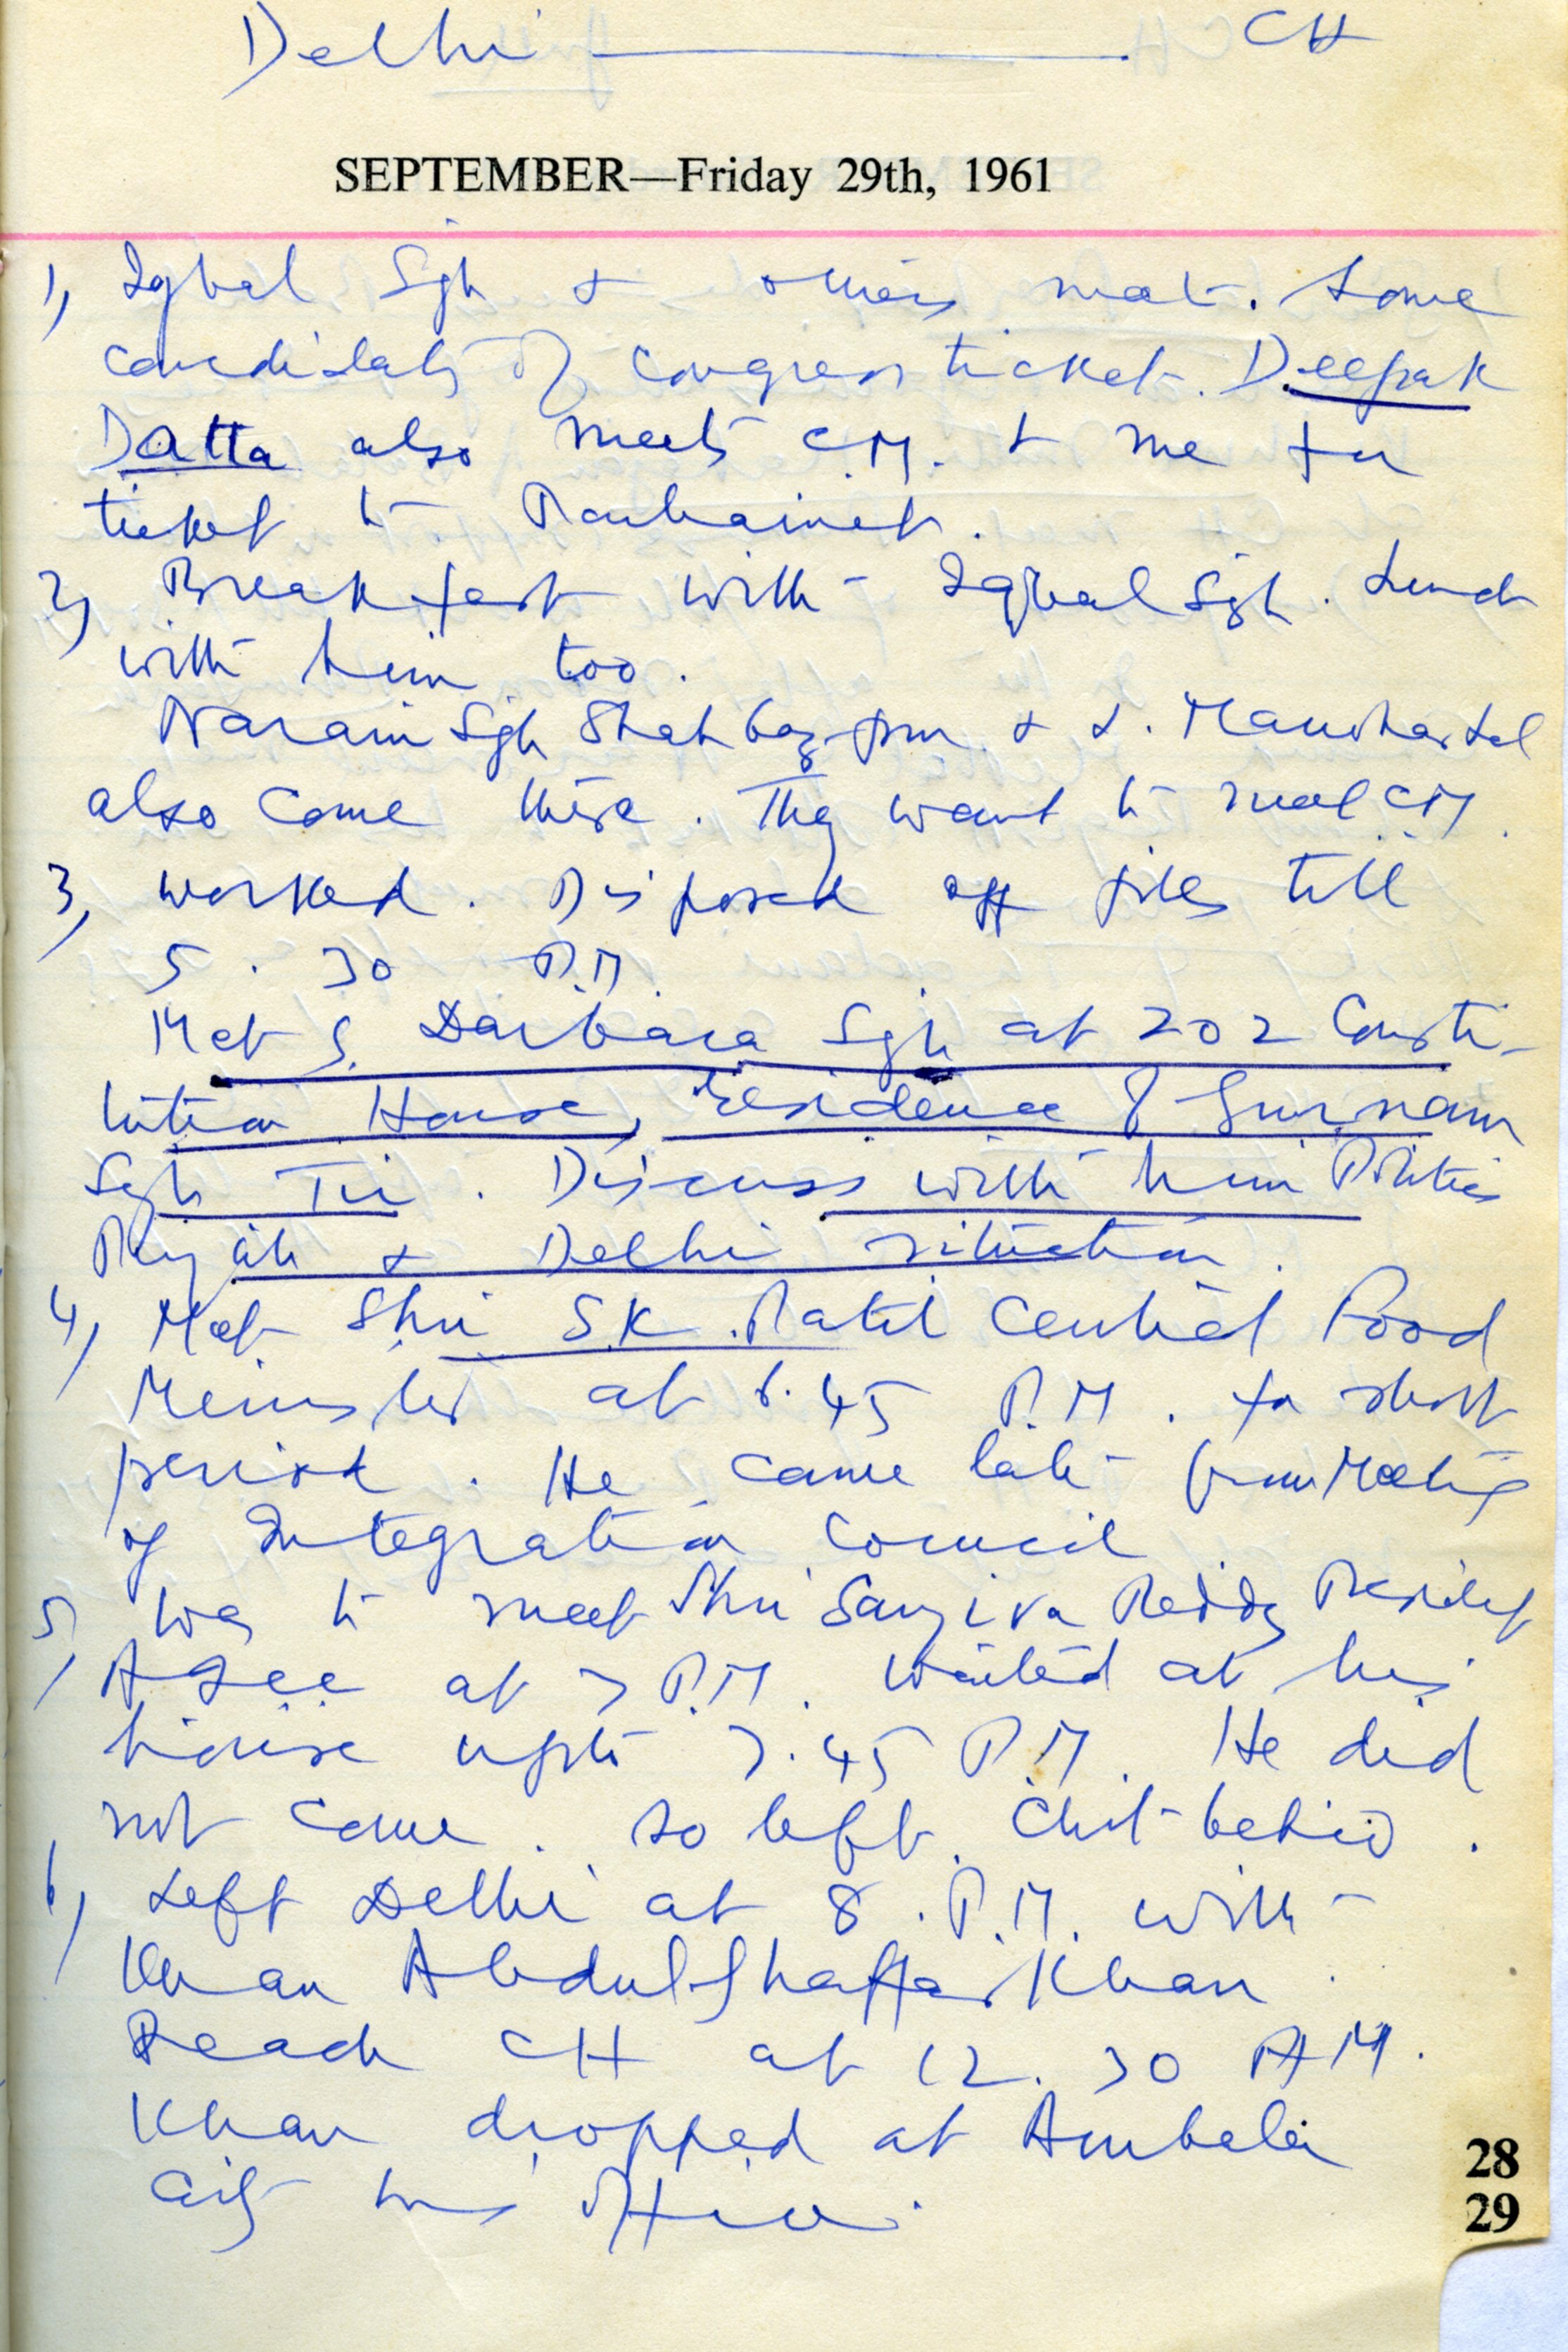 Delhi — CH
SEPTEMBER—Friday 29th, 1961
1, Iqbal Sgh & others meet. Some
candidates of Congress ticket. Deepak
Datta also meets C.M. & me for
ticket to
2, Breakfast with Iqbal Sgh. Lunch
with him too.
Narain Sgh Shahbazpur & L. Manoharlal
also come there. They want to meet CM.
3, Worked. Disposed off files till
5.30 P.M.
Met S. Darbara Sgh at 202 Consti-
tution House, residence of Gurnam
Sgh Tir. Discuss with him Politics
Punjab & Delhi situation.
4, Met Shri S.K. Patil Central Food
Minister at 6.45 P.M. for short
period. He came late from Meeting
of Integration Council
5, Was to meet Shri Sanjiva Reddy President
AICC at 7 P.M. Waited at his
house upto 7.45 P.M. He did
not come. So left Chit behind.
6, Left Delhi at 8 P.M. with
Khan Abdul Ghaffar Khan.
Reach CH at 12.30 AM.
Khan dropped at Ambala
City his office.
28
29